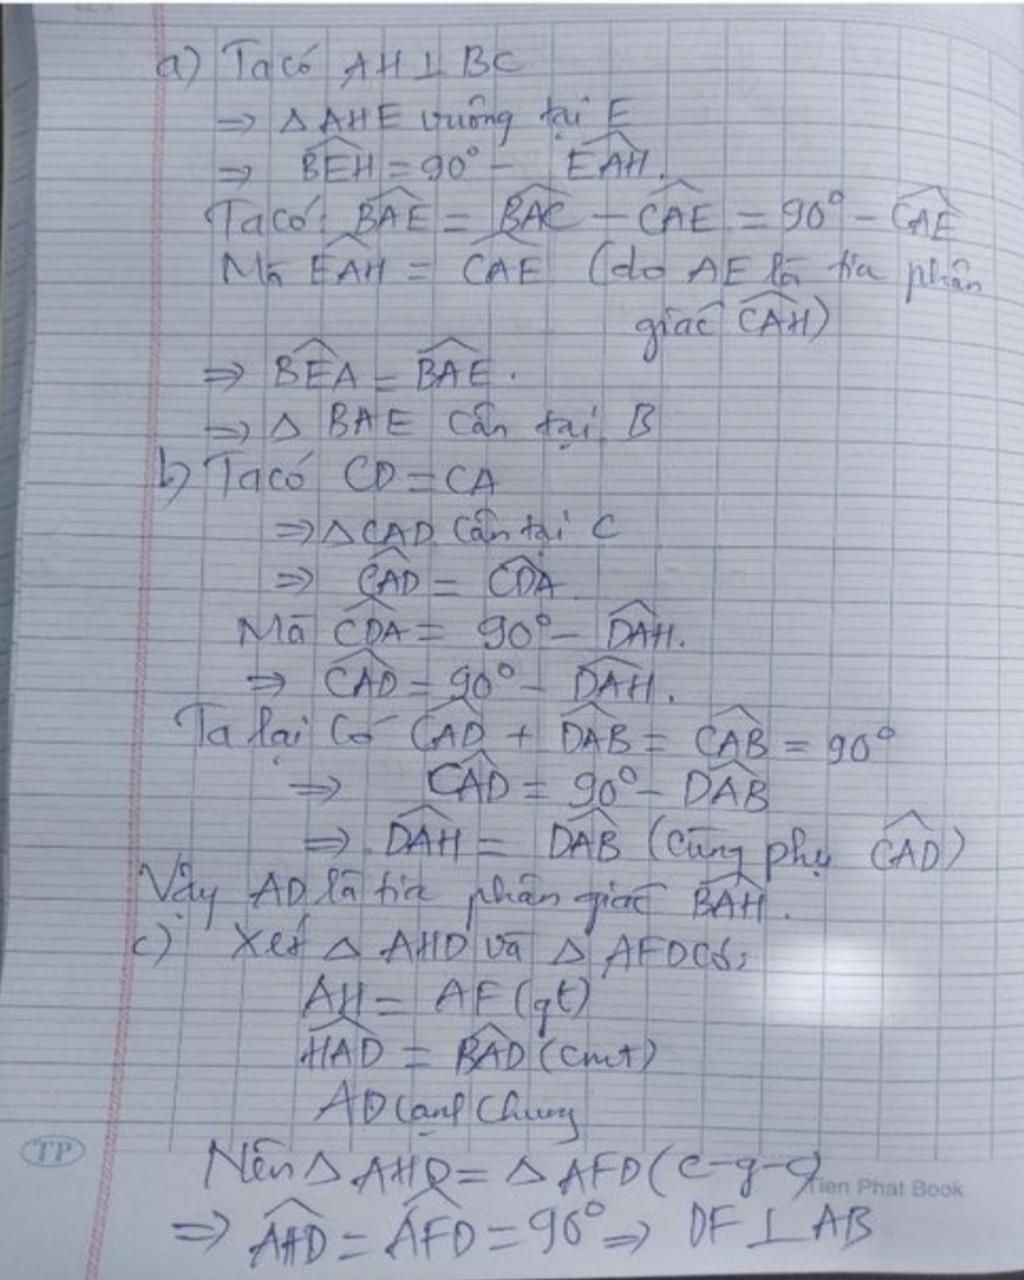 a) Ta có AH ⊥ BC
⇒ △ AHE vuông tại E
⇒ BEH = 90° - EAH.
Ta có: BAE = BAC - CAE = 90° - CAE
Mà EAH = CAE (do AE là tia phân
giác CAH)
⇒ BEA = BAE.
⇒ △ BAE cân tại B
b) Ta có CD = CA
⇒ △ CAD cân tại C
⇒ CAD = CDA.
Mà CDA = 90° - DAH.
⇒ CAD = 90° - DAH.
Ta lại có CAD + DAB = CAB = 90°
⇒ CAD = 90° - DAB
⇒ DAH = DAB (cùng phụ CAD)
Vậy AD là tia phân giác BAH.
c) Xét △ AHD và △ AFD có:
AH = AF (gt)
HAD = BAD (cmt)
AD cạnh chung
Nên △ AHD = △ AFD (c-g-c)
TP
Tien Phat Book
⇒ AHD = AFD = 90° ⇒ DF ⊥ AB